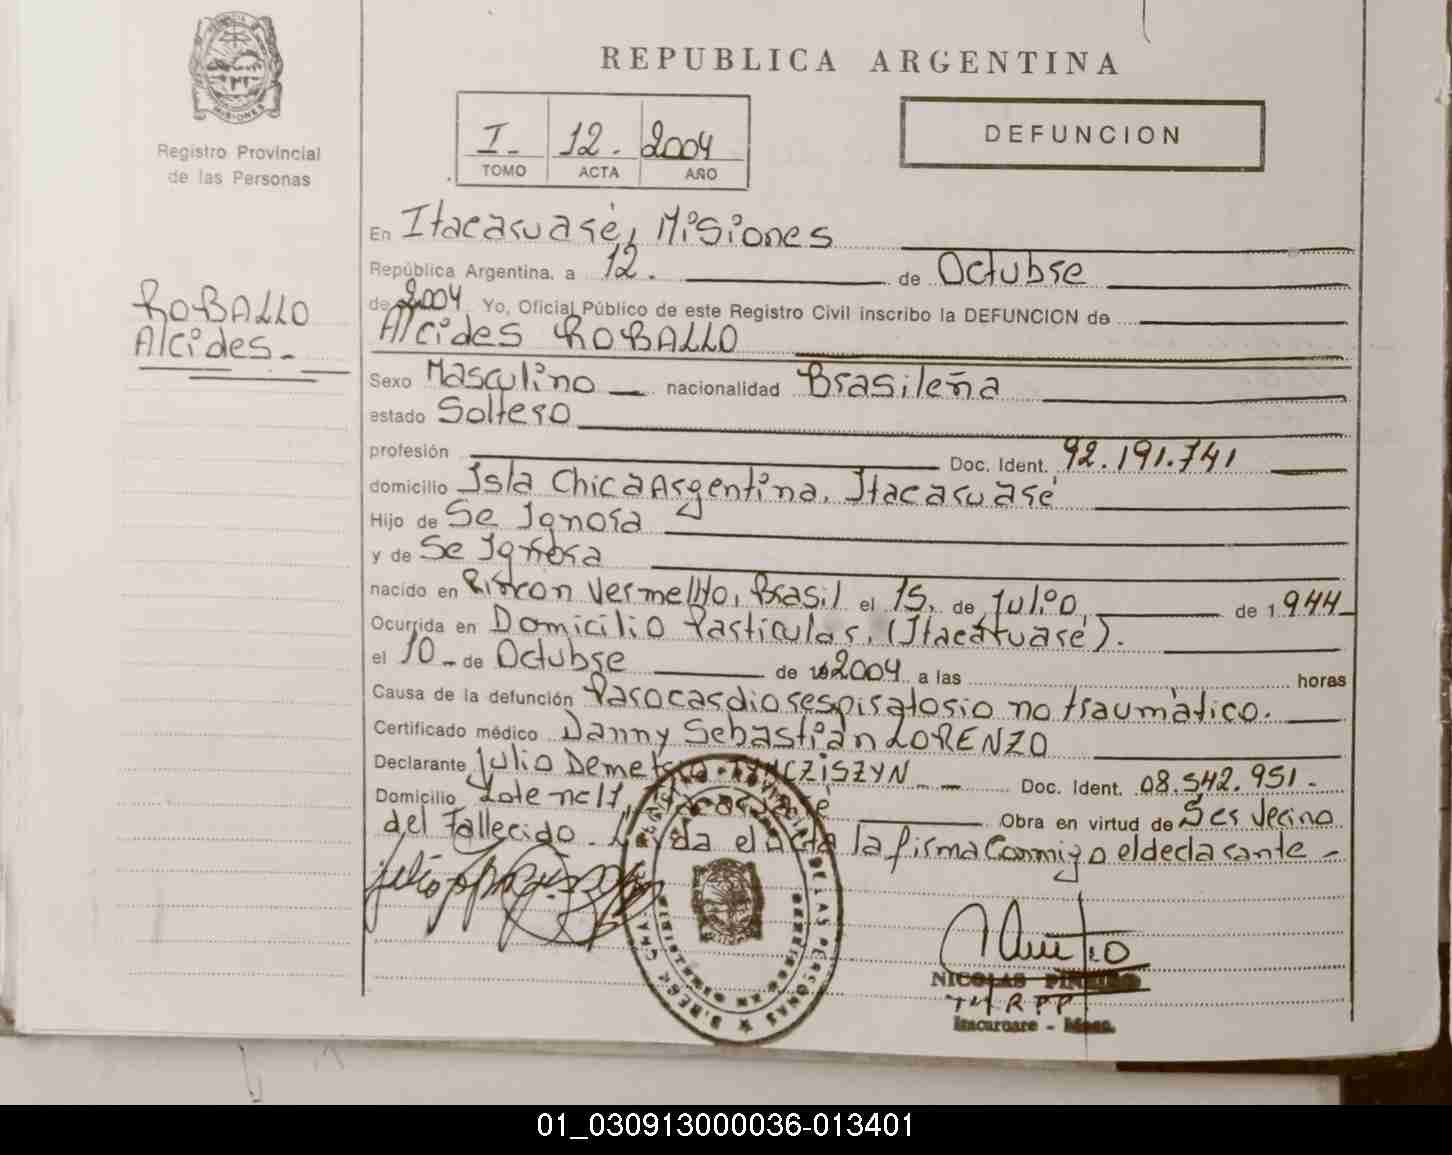 REPUBLICA ARGENTINA
MISIONES
Registro Provincial
de las Personas
I- 12. 2004
TOMO ACTA AÑO
DEFUNCION
ROBALLO
Alcides-
En Itacaruaré, Misiones
República Argentina, a 12. de Octubre
de 2004 Yo, Oficial Público de este Registro Civil inscribo la DEFUNCION de
Alcides ROBALLO
Sexo Masculino nacionalidad Brasileña
estado Soltero
profesión Doc. Ident. 92.191.741
domicilio Isla Chica Argentina, Itacaruaré
Hijo de Se Ignora
y de Se Ignora
nacido en Rincon Vermelho, Brasil el 15, de Julio de 1.944-
Ocurrida en Domicilio Particular, (Itacaruaré).
el 10- de Octubre de 2004 a las horas
Causa de la defunción Parocardiorespiratorio no traumàtico.
Certificado médico Danny Sebastián LORENZO
Declarante Julio Doc. Ident. 08.542.951-
Domicilio Lote nº17, Itacaruaré Obra en virtud de Ser Vecino
del Fallecido. Leyda el acta la firma Conmigo el declarante-
DE LAS PERSONAS
NICOLAS
Itacaruare - Mnes.
01_030913000036-013401